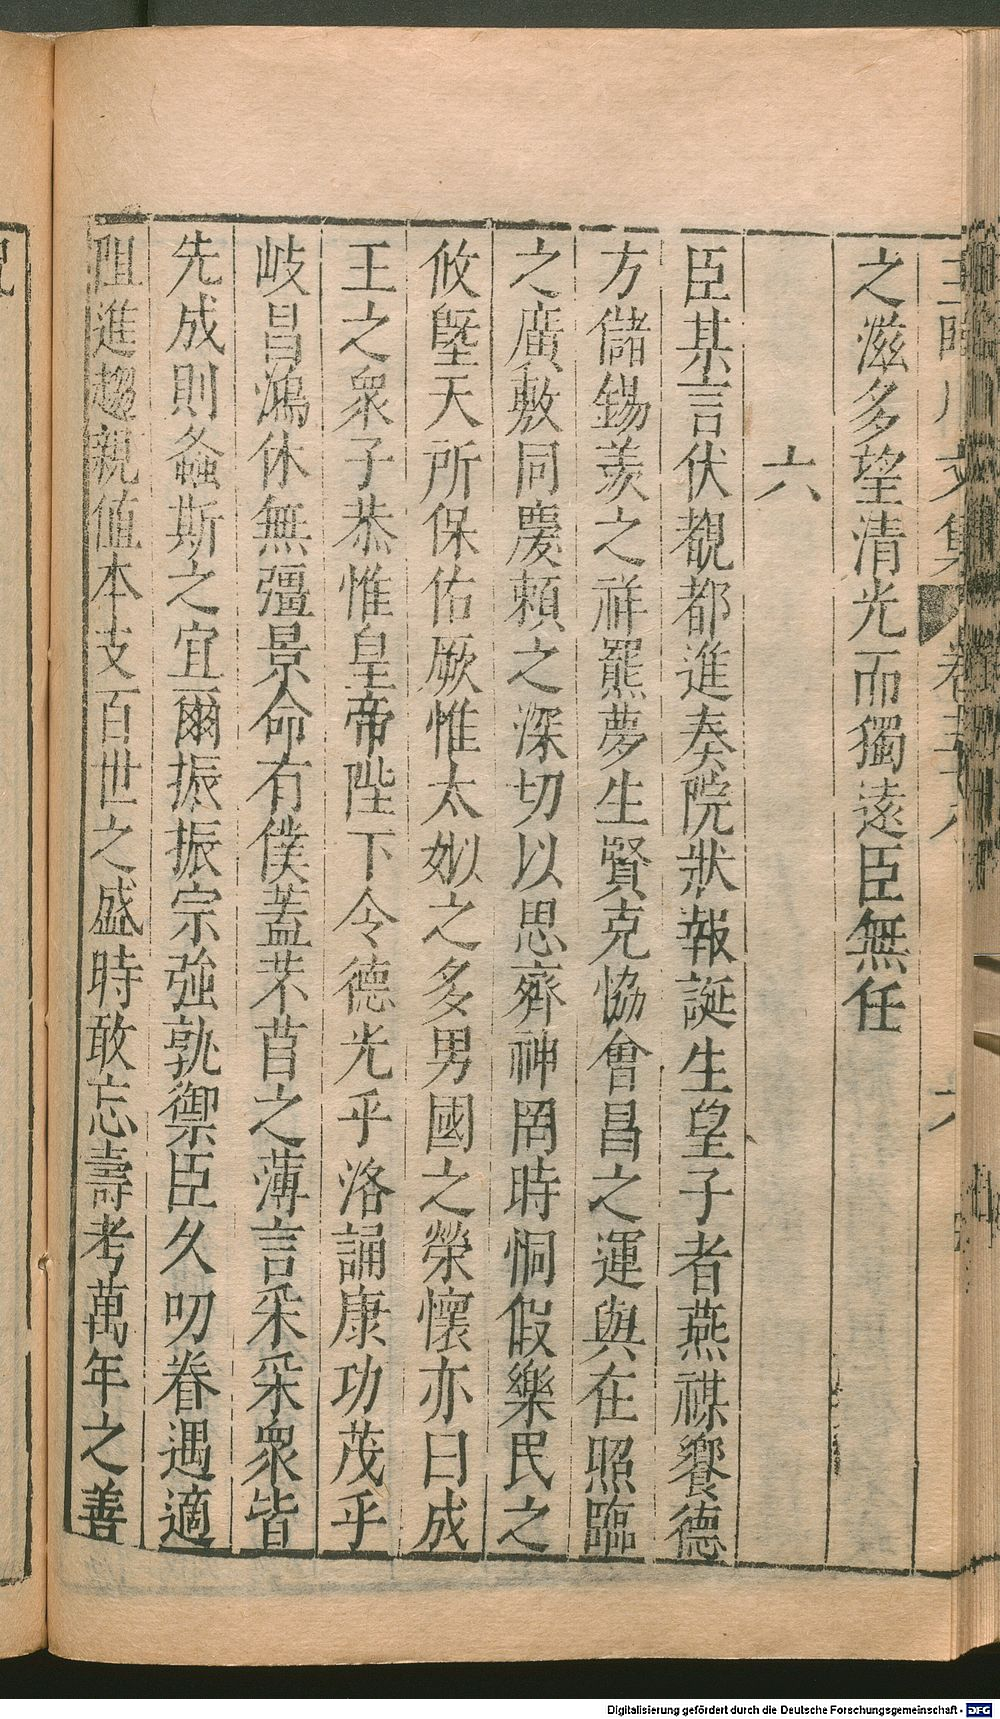 之滋多望清光而獨遠臣無任
六
臣某言伏覩都進奏院狀報誕生皇子者燕禖饗德
方儲錫羨之祥羆夢生賢克協會昌之運與在照臨
之廣敷同慶賴之深切以思齊神罔時恫假樂民之
攸墍天所保佑厥惟太姒之多男國之榮懷亦曰成
王之衆子恭惟皇帝陛下令德光乎洛誦康功茂乎
岐昌鴻休無彊景命有僕蓋芣苢之薄言采采衆皆
先成則螽斯之宜爾振振宗強孰禦臣久叨眷遇適
阻進趨親值本支百世之盛時敢忘壽考萬年之善
Digitalisierung gefördert durch die Deutsche Forschungsgemeinschaft - DFG